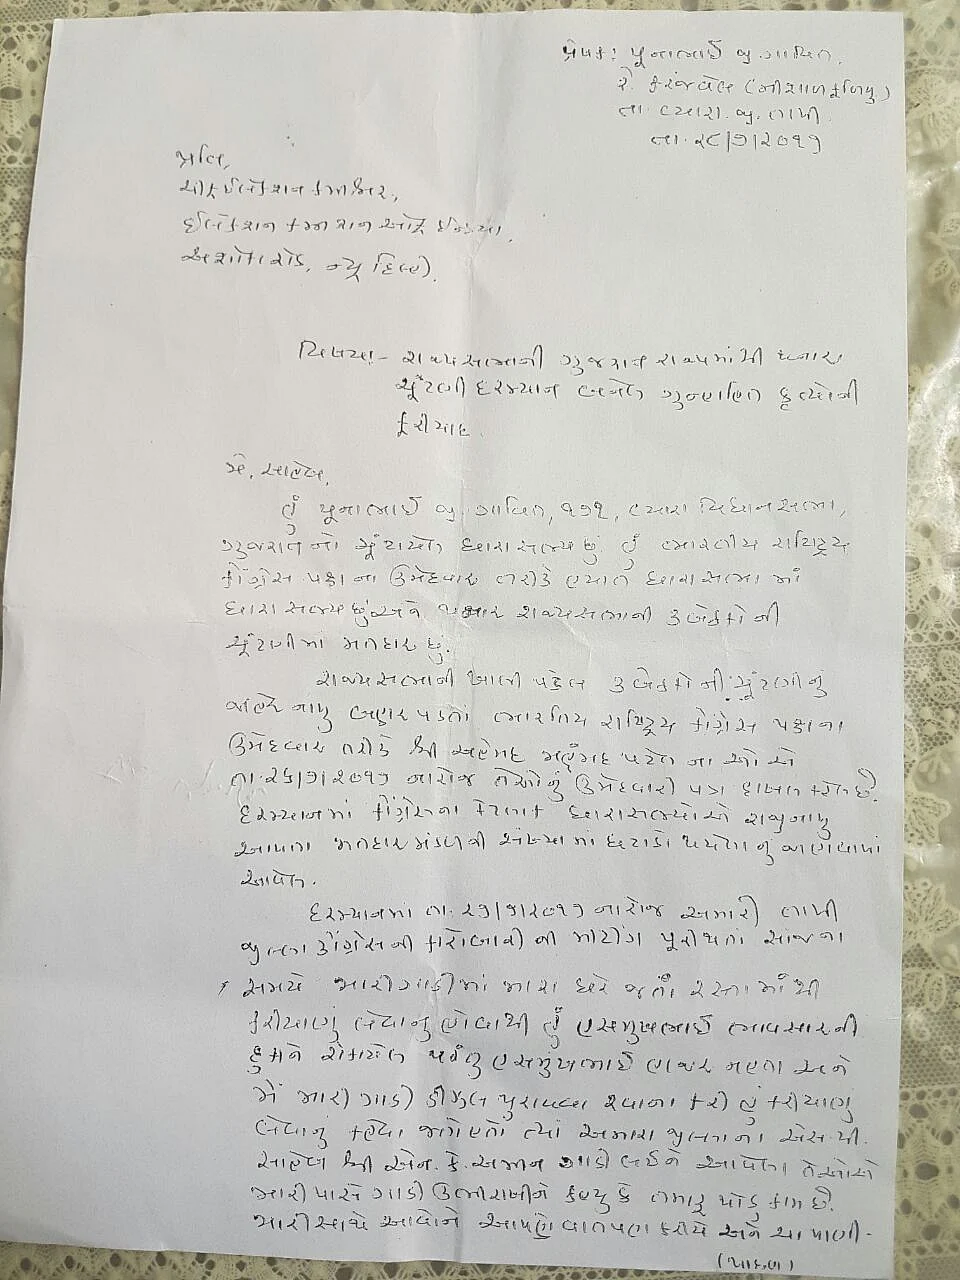 પ્રેષક: પૂનાભાઈ જી. ગામિત,
રે. કરંજવેલ (નીશાળ ફળિયુ)
તા. વ્યારા. જી. તાપી.
તા. ૨૮/૭/૨૦૧૭
પ્રતિ,
ચીફ ઈલેકશન કમીશ્નર,
ઈલેકશન કમીશન ઓફ ઈન્ડીયા,
અશોકા રોડ, ન્યૂ દિલ્હી.
વિષય:- રાજ્યસભાની ગુજરાત રાજ્યમાંથી થનાર
ચૂંટણી દરમ્યાન બનેલ ગુન્હાહિત કૃત્યોની
ફરીયાદ.
મે. સાહેબ,
હું પૂનાભાઈ જી. ગામિત, ૧૭૧, વ્યારા વિધાનસભા,
ગુજરાતનો ચૂંટાયેલ ધારાસભ્ય છું. હું ભારતીય રાષ્ટ્રિય
કોંગ્રેસ પક્ષના ઉમેદવાર તરીકે હયાત ધારાસભામાં
ધારાસભ્ય છું અને થનાર રાજ્યસભાની ૩ બેઠકોની
ચૂંટણીમાં મતદાર છું.
રાજ્યસભાની ખાલી પડેલ ૩ બેઠકોની ચૂંટણીનું
જાહેરનામુ બહાર પડતાં ભારતિય રાષ્ટ્રિય કોંગ્રેસ પક્ષના
ઉમેદવાર તરીકે શ્રી અહેમદ મહંમદ પટેલ નાઓએ
તા. ૨૬/૭/૨૦૧૭ નારોજ તેઓનું ઉમેદવારી પત્ર દાખલ કરેલ છે.
દરમ્યાનમાં કોંગ્રેસના કેટલાક ધારાસભ્યોએ રાજીનામુ
આપતા મતદાર મંડળની સંખ્યામાં ઘટાડો થયેલાનું જાણવામાં
આવેલ.
દરમ્યાનમાં તા. ૨૭/૭/૨૦૧૭ નારોજ અમારી તાપી
જીલ્લા કોંગ્રેસની કારોબારી ની મીટીંગ પૂરી થતાં સાંજના
સમયે મારી ગાડીમાં મારા ઘરે જતાં રસ્તામાંથી
કરીયાણું લેવાનું હોવાથી હું હસમુખભાઈ ભાવસારની
દુકાને રોકાયેલ પરંતુ હસમુખભાઈ હાજર નહતા અને
મેં મારી ગાડી ડીઝલ પુરાવવા રવાના કરી હું કરીયાણું
લેવાનું કહેવા જતો હતો ત્યાં અમારા જીલ્લાના એસ.પી.
સાહેબ શ્રી એન. કે. અમીન ગાડી લઈને આવેલા તેઓએ
મારી પાસે ગાડી ઉભી રાખીને કહ્યુ કે તમારૂ થોડુ કામ છે.
મારી સાથે આવોને આપણે વાતપણ કરીયે અને ચા પાણી-